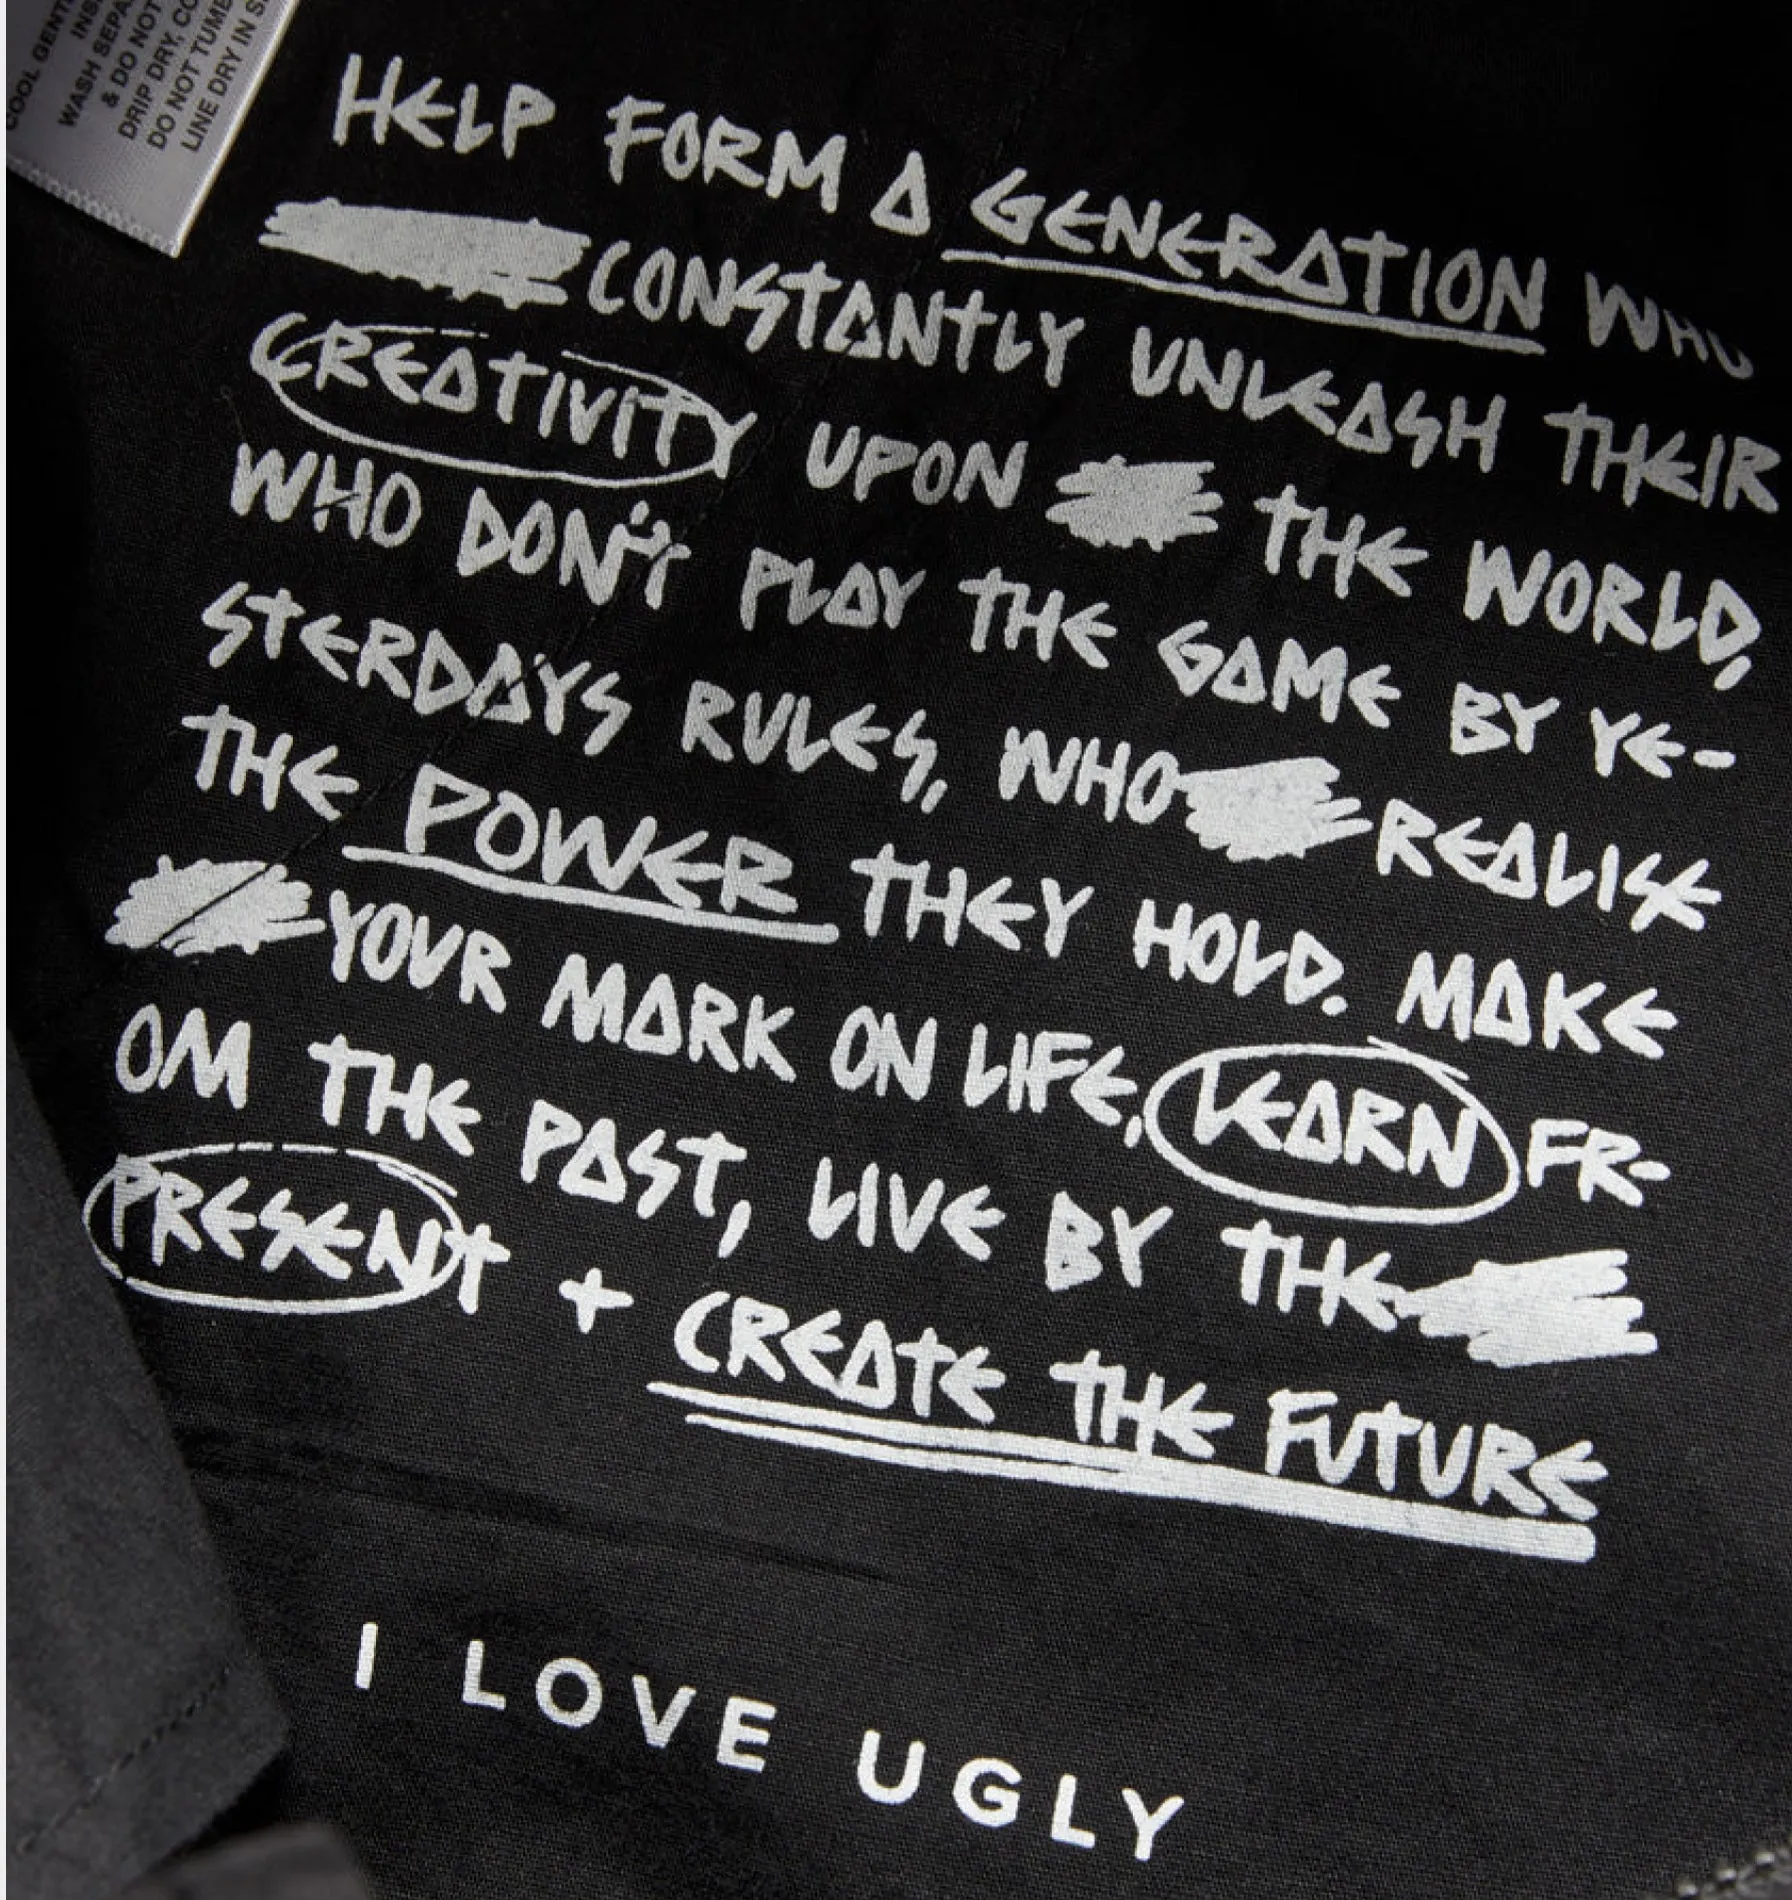 COOL GENT
INS
WASH SEPA
& DO NOT
DRIP DRY, CO
DO NOT TUMB
LINE DRY IN S
HELP FORM A GENERATION WHO
CONSTANTLY UNLEASH THEIR
CREATIVITY UPON THE WORLD,
WHO DON'T PLAY THE GAME BY YE-
STERDAYS RULES, WHO REALISE
THE POWER THEY HOLD. MAKE
YOUR MARK ON LIFE, LEARN FR-
OM THE PAST, LIVE BY THE
PRESENT + CREATE THE FUTURE
I LOVE UGLY